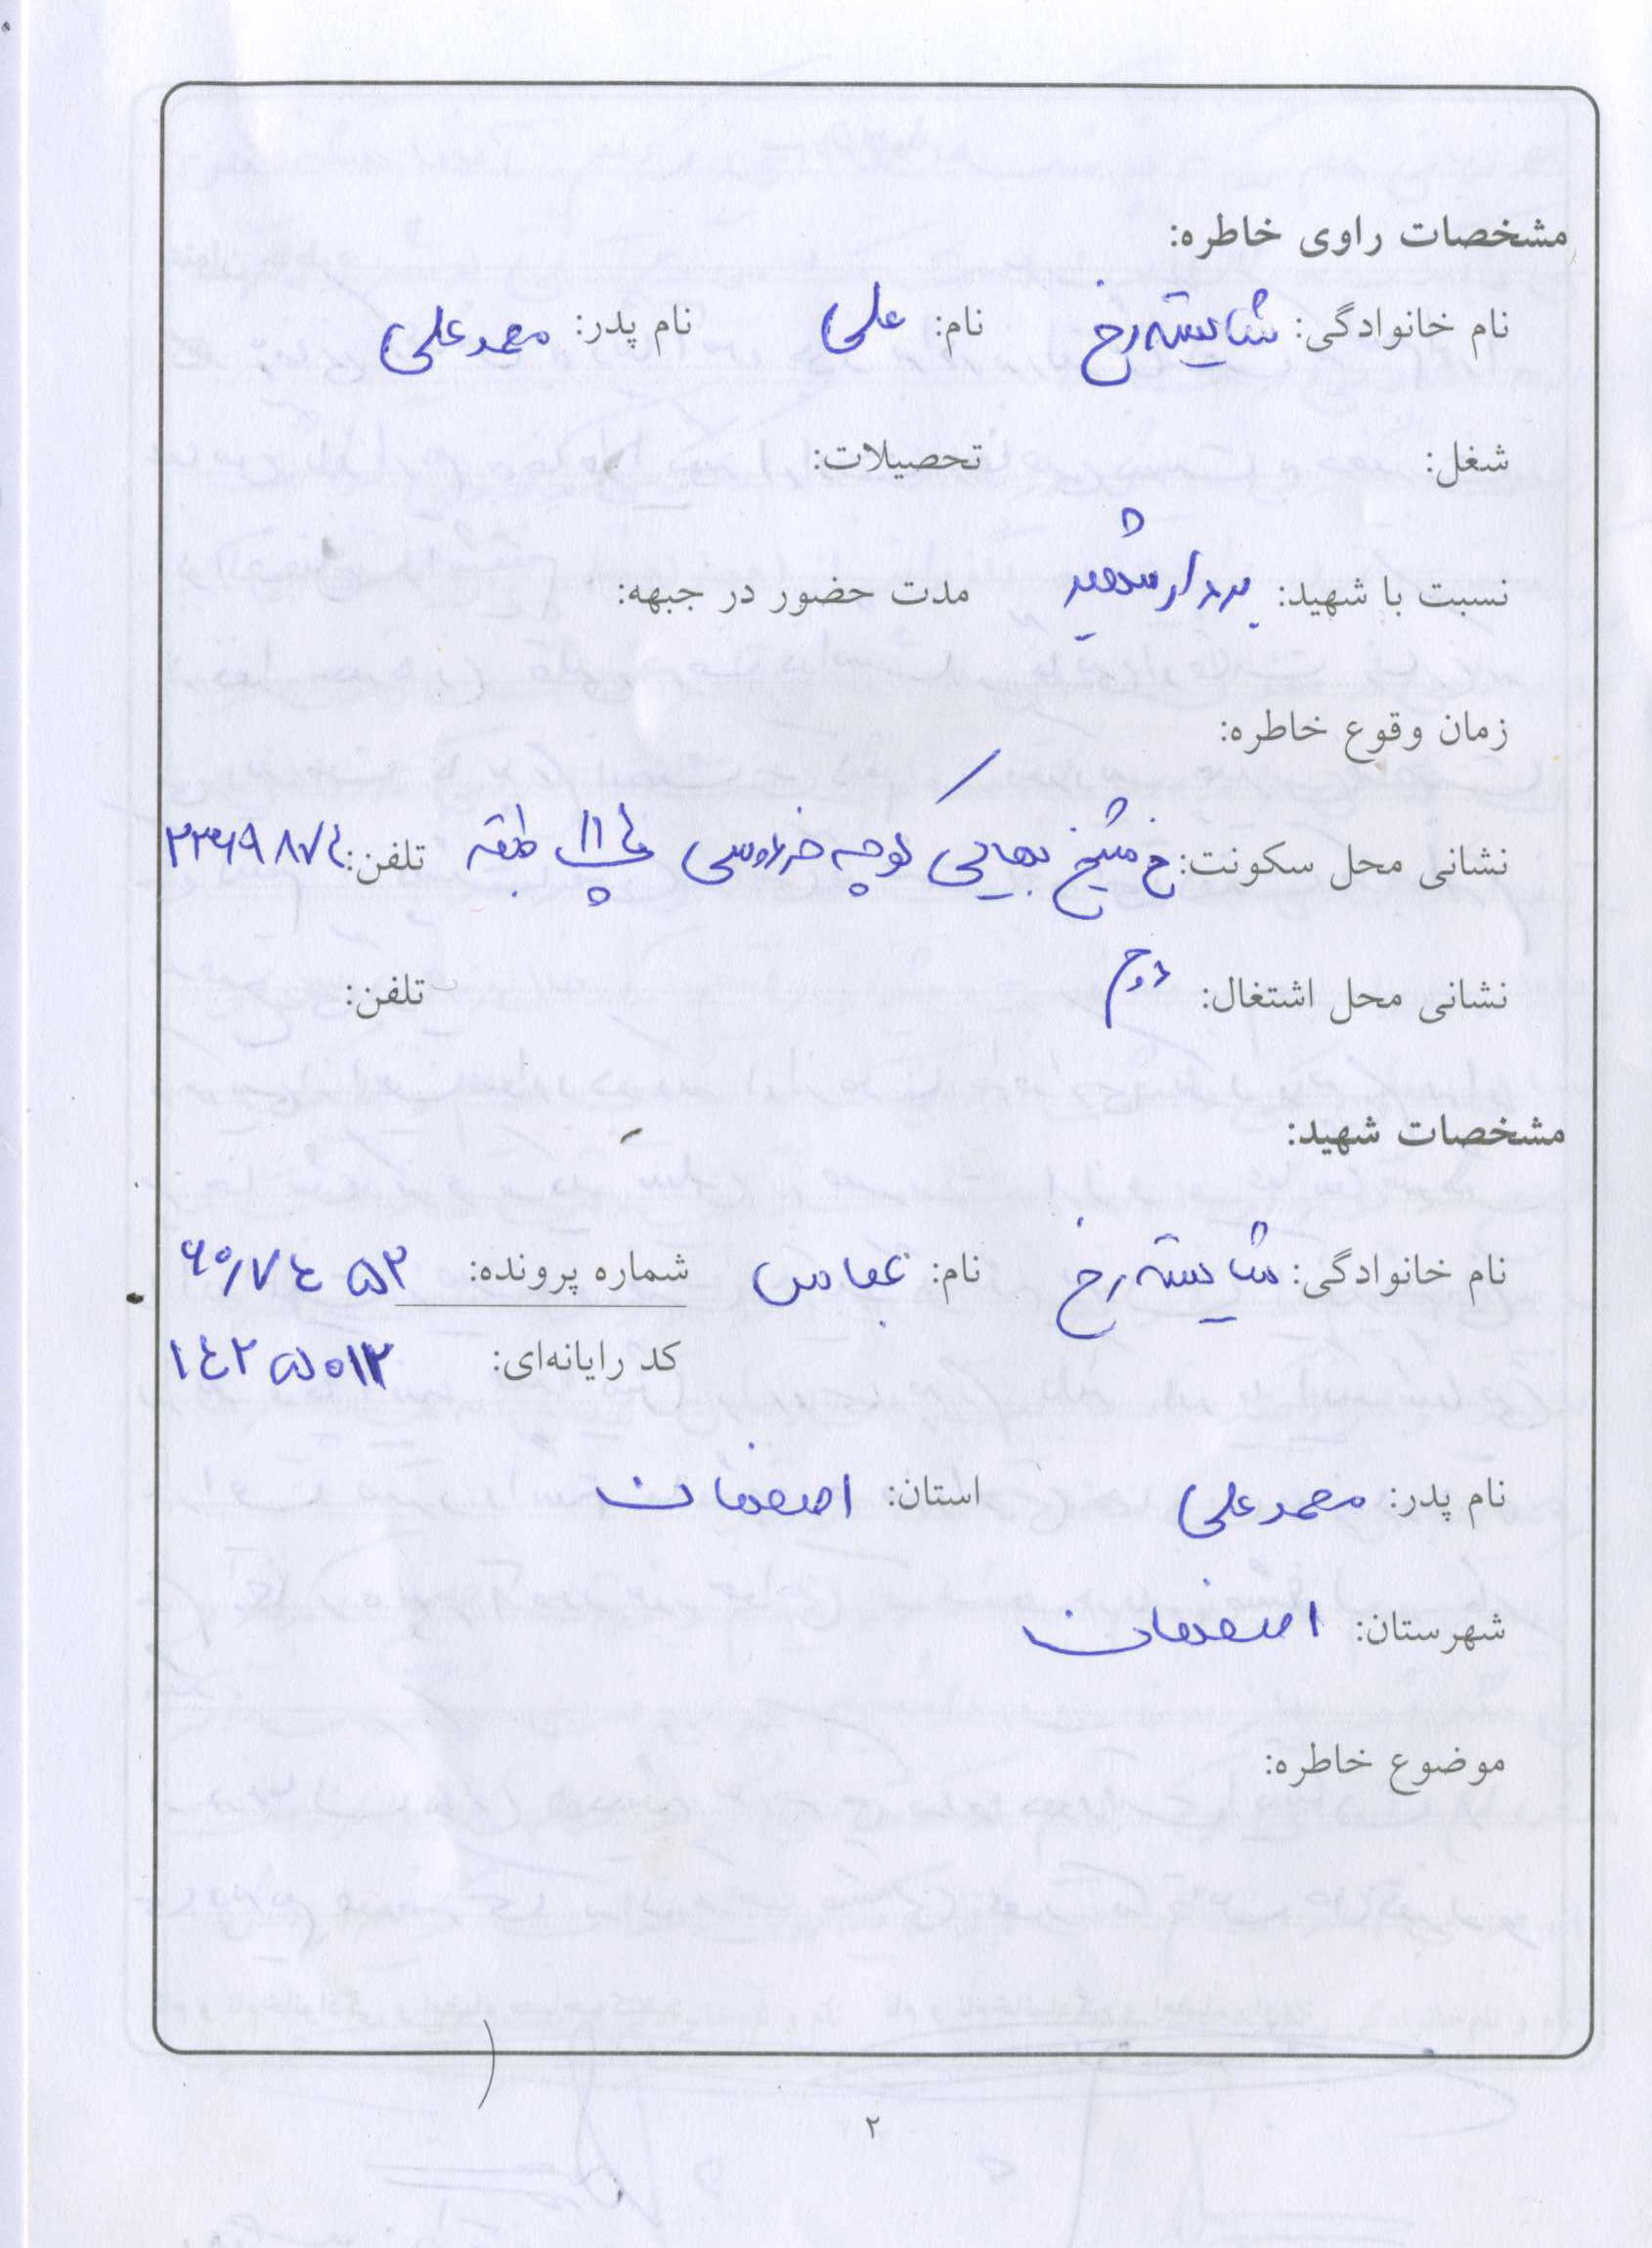 مشخصات راوی خاطره:
نام خانوادگی: شایسته رخ نام: علی نام پدر: محمد علی
شغل: تحصیلات:
نسبت با شهید: برادر شهید مدت حضور در جبهه:
زمان وقوع خاطره:
نشانی محل سکونت: خ شیخ بهایی کوچه فردوسی پلاک ۱۱ طبقه تلفن:
نشانی محل اشتغال: دوم تلفن:
مشخصات شهید:
نام خانوادگی: شایسته رخ نام: عباس شماره پرونده: ۶۰/۷۴۵۳
کد رایانه‌ای: ۱۴۲۵۰۱۲
نام پدر: محمد علی استان: اصفهان
شهرستان: اصفهان
موضوع خاطره:
۲